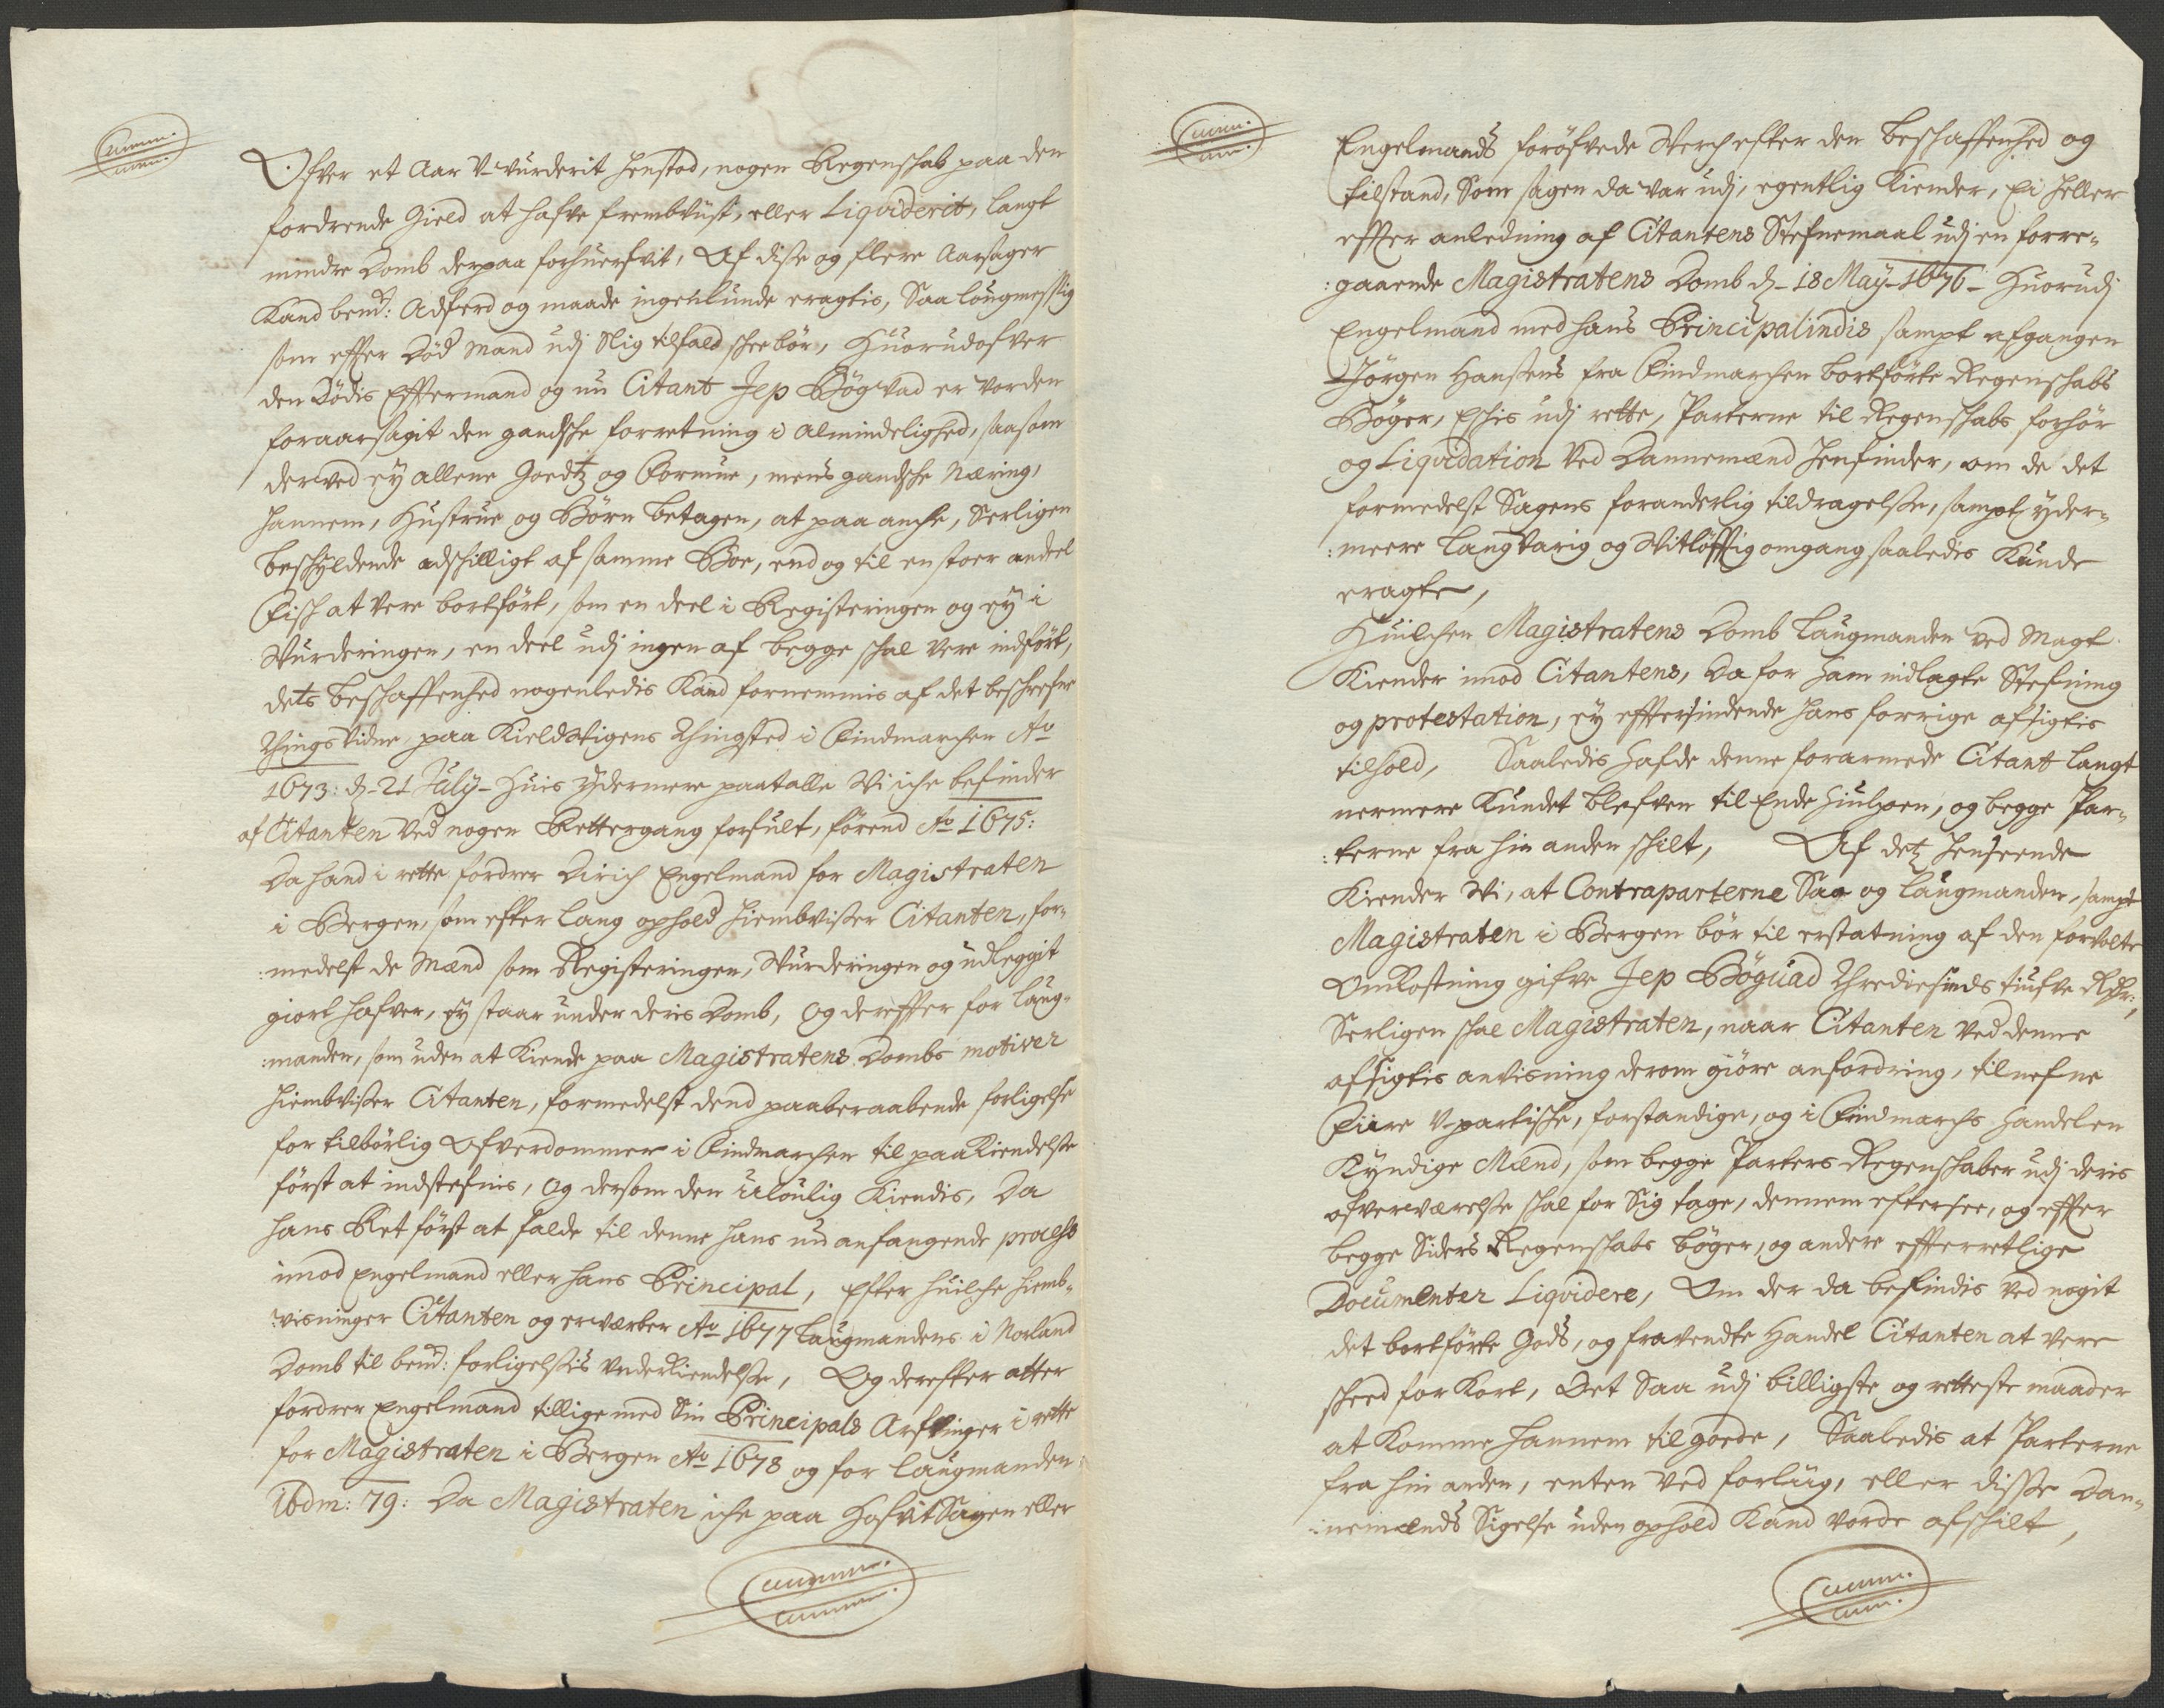 Ofver et Aar V-vurderit henstod, nogen Regenschab paa den
fordrende Gield at hafve frembvist, eller Liqviderit, langt
mindre Domb derpaa forhuerfvit, Af disse og flere Aarsager
Kand bemt: Adferd og maade ingenlunde eragtis, Saa lougmessig
som effter Död Mand udj Slig tilfald schee bör, Huorudofver
den Dödis Effermand og nu Citant Jep Bögvad er vorden
foraarsagit den gandsche forretning i Almindelighed, saasom
derved ey allene Goedtz og Formue, mens gandsche Næring,
hannem, Hustrue og Börn betagen, at paa ancke, Serligen
beschyldende adschilligt af samme Boe, end og til en stoer andeel
Fisch at vere bortfört, som en deel i Registeringen og ey i
Wurderingen, en deel udj ingen af begge schal vere indfört,
dets beschaffenhed nogenledis Kand fornemmis af det beschrefne
Thingsvidne paa Kieldvigens Thingsted i Findmarchen Ao
1673: d. 21 July - Huis ydermere paatalle Wi iche befinder
af Citanten ved nogen Rettergang forfult, förend Ao 1675:
Da hand i rette fordrer Dirich Engelmand for Magistraten
i Bergen, som efter lang ophold hiembvisser Citanten, for-
:medelst de Mænd som Registeringen, Wurderingen og udleggit
giort hafver, ey staar under deris Domb, og dereffter for laug-
:manden, som uden at Kiende paa Magistratens Dombs motiver
hiembvisser Citanten, formedelst dend paaberaabende forligelse
for tilbörlig Ofverdommer i Findmarchen til paaKiendelse
först at indstefnis, og dersom den uloulig Kiendis, Da
hans Ret först at falde til denne hans nu anfangende process
imod Engelmand eller hans Principal, Efter huilche hiemb-
:visninger Citanten og erværber Ao 1677 Laugmandens i Norland
Domb til bemt: forligelses VnderKiendelse, Og derefter atter
fordrer Engelmand tillige med Sin Principals Arfvinger i rette
for Magistraten i Bergen Ao 1678 og for laugmanden
ibdm: 79: Da Magistraten iche paa HofvitSagen eller
Engelmands foröfvede Werch efter den beschaffenhed og
tilstand, Som sagen da var udj, egentlig Kiender, Ei heller
effter anledning af Citantens Stefnemaal udj en forre-
:gaaende Magistratens Domb d. 18 May 1676 - Huorudj
Engelmand med hans Principalindis sampt afgangen
Jörgen Hansens fra Findmarchen bortförte Regenschabs
Böger, Eskis udj rette, Parterne til Regenschabs forhör
og Liqvidation ved Dannemænd henfinder, om de det
formedelst Sagens foranderlig tildragelse, sampt yder-
:meere langvarig og Witlöfftig omgang saaledis Kunde
eragte,
Huilchen Magistratens Domb laugmanden ved Magt
Kiender imod Citantens, Da for ham indlagte Stefning
og protestation, ey efftersindende hans forrige afsigtis
tilhold, Saaledis hafde denne forarmede Citant langt
nermere Kundet blefven til Ende hiulpen, og begge Par-
:terne fra hin anden schilt, Af detz henseende
Kiender Wi, at Contraparterne Sag og laugmanden, sampt
Magistraten i Bergen bör til erstatning af den forvolte
OmKostning gifve Jep Böguad Thrediesinds tiufve Rdr:,
Serligen schal Magistraten, naar Citanten ved denne
afsigtis anvisning derom giöre anfordring, tilnefne
Fiire V-partische, forstandige, og i Findmarchs Handelen
Kyndige Mænd, som begge Parters Regenschaber udj deris
ofverværelse schal for Sig tage, dennem eftersee, og effter
begge Siders Regenschabs böger, og andere effterretlige
Documenter Liqvidere, Om der da befindis ved nogit
det bortförte Gods, og fravendte Handel Citanten at vere
scheed for Kort, Det Saa udj billigste og retteste maader
at Komme hannem til goede, Saaledis at Parterne
fra hin anden, enten ved forlüg, eller disse Dan-
:nemænds Sigelse uden ophold Kand vorde afschilt,